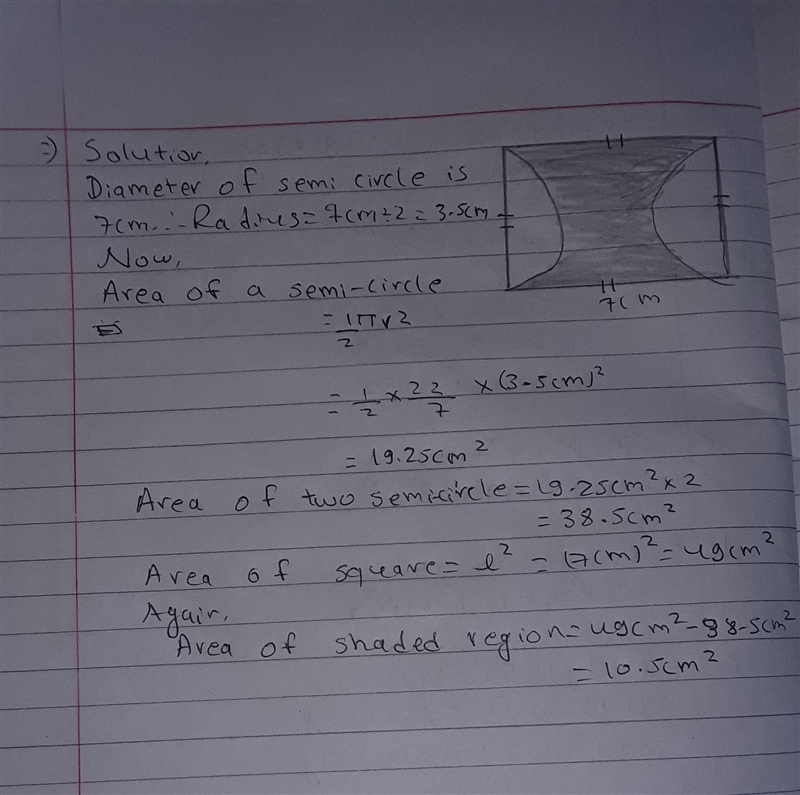 =) Solution,
Diameter of semi circle is
7cm. ∴ Radius = 7cm÷2 = 3.5cm
Now,
Area of a semi-circle
= 1/2 πr2
= 1/2 × 22/7 × (3.5cm)²
= 19.25cm²
Area of two semicircle = 19.25cm² × 2
= 38.5cm²
Area of square = l² = (7cm)² = 49cm²
Again,
Area of shaded region = 49cm² - 38.5cm²
= 10.5cm²
7cm